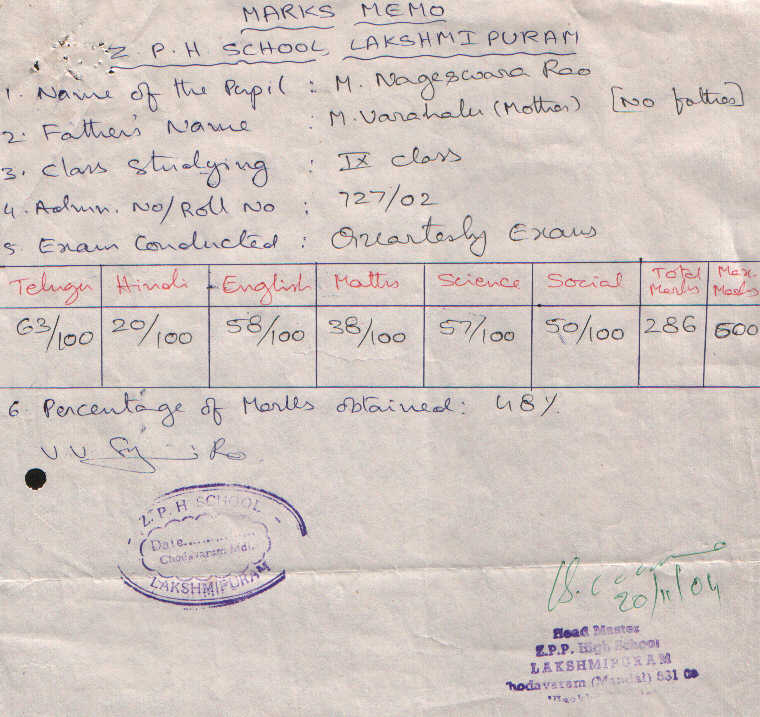 MARKS MEMO
Z.P.H SCHOOL, LAKSHMIPURAM
1. Name of the Pupil : M. Nageswara Rao
2. Father's Name : M. Varahalu (Mother) [No father]
3. Class Studying : IX class
4. Admn. No/Roll No : 727/02
5. Exam Conducted : Quarterly Exams
Telugu Hindi English Maths Science Social Total Marks Max. Marks
63/100 20/100 58/100 38/100 57/100 50/100 286 600
6. Percentage of Marks obtained: 48%
Z.P.H SCHOOL
Date................
Chodavaram Mdl.
LAKSHMIPURAM
20/11/04
Head Master
Z.P.P. High School
LAKSHMIPURAM
hodavaram (Mandal) 531 0